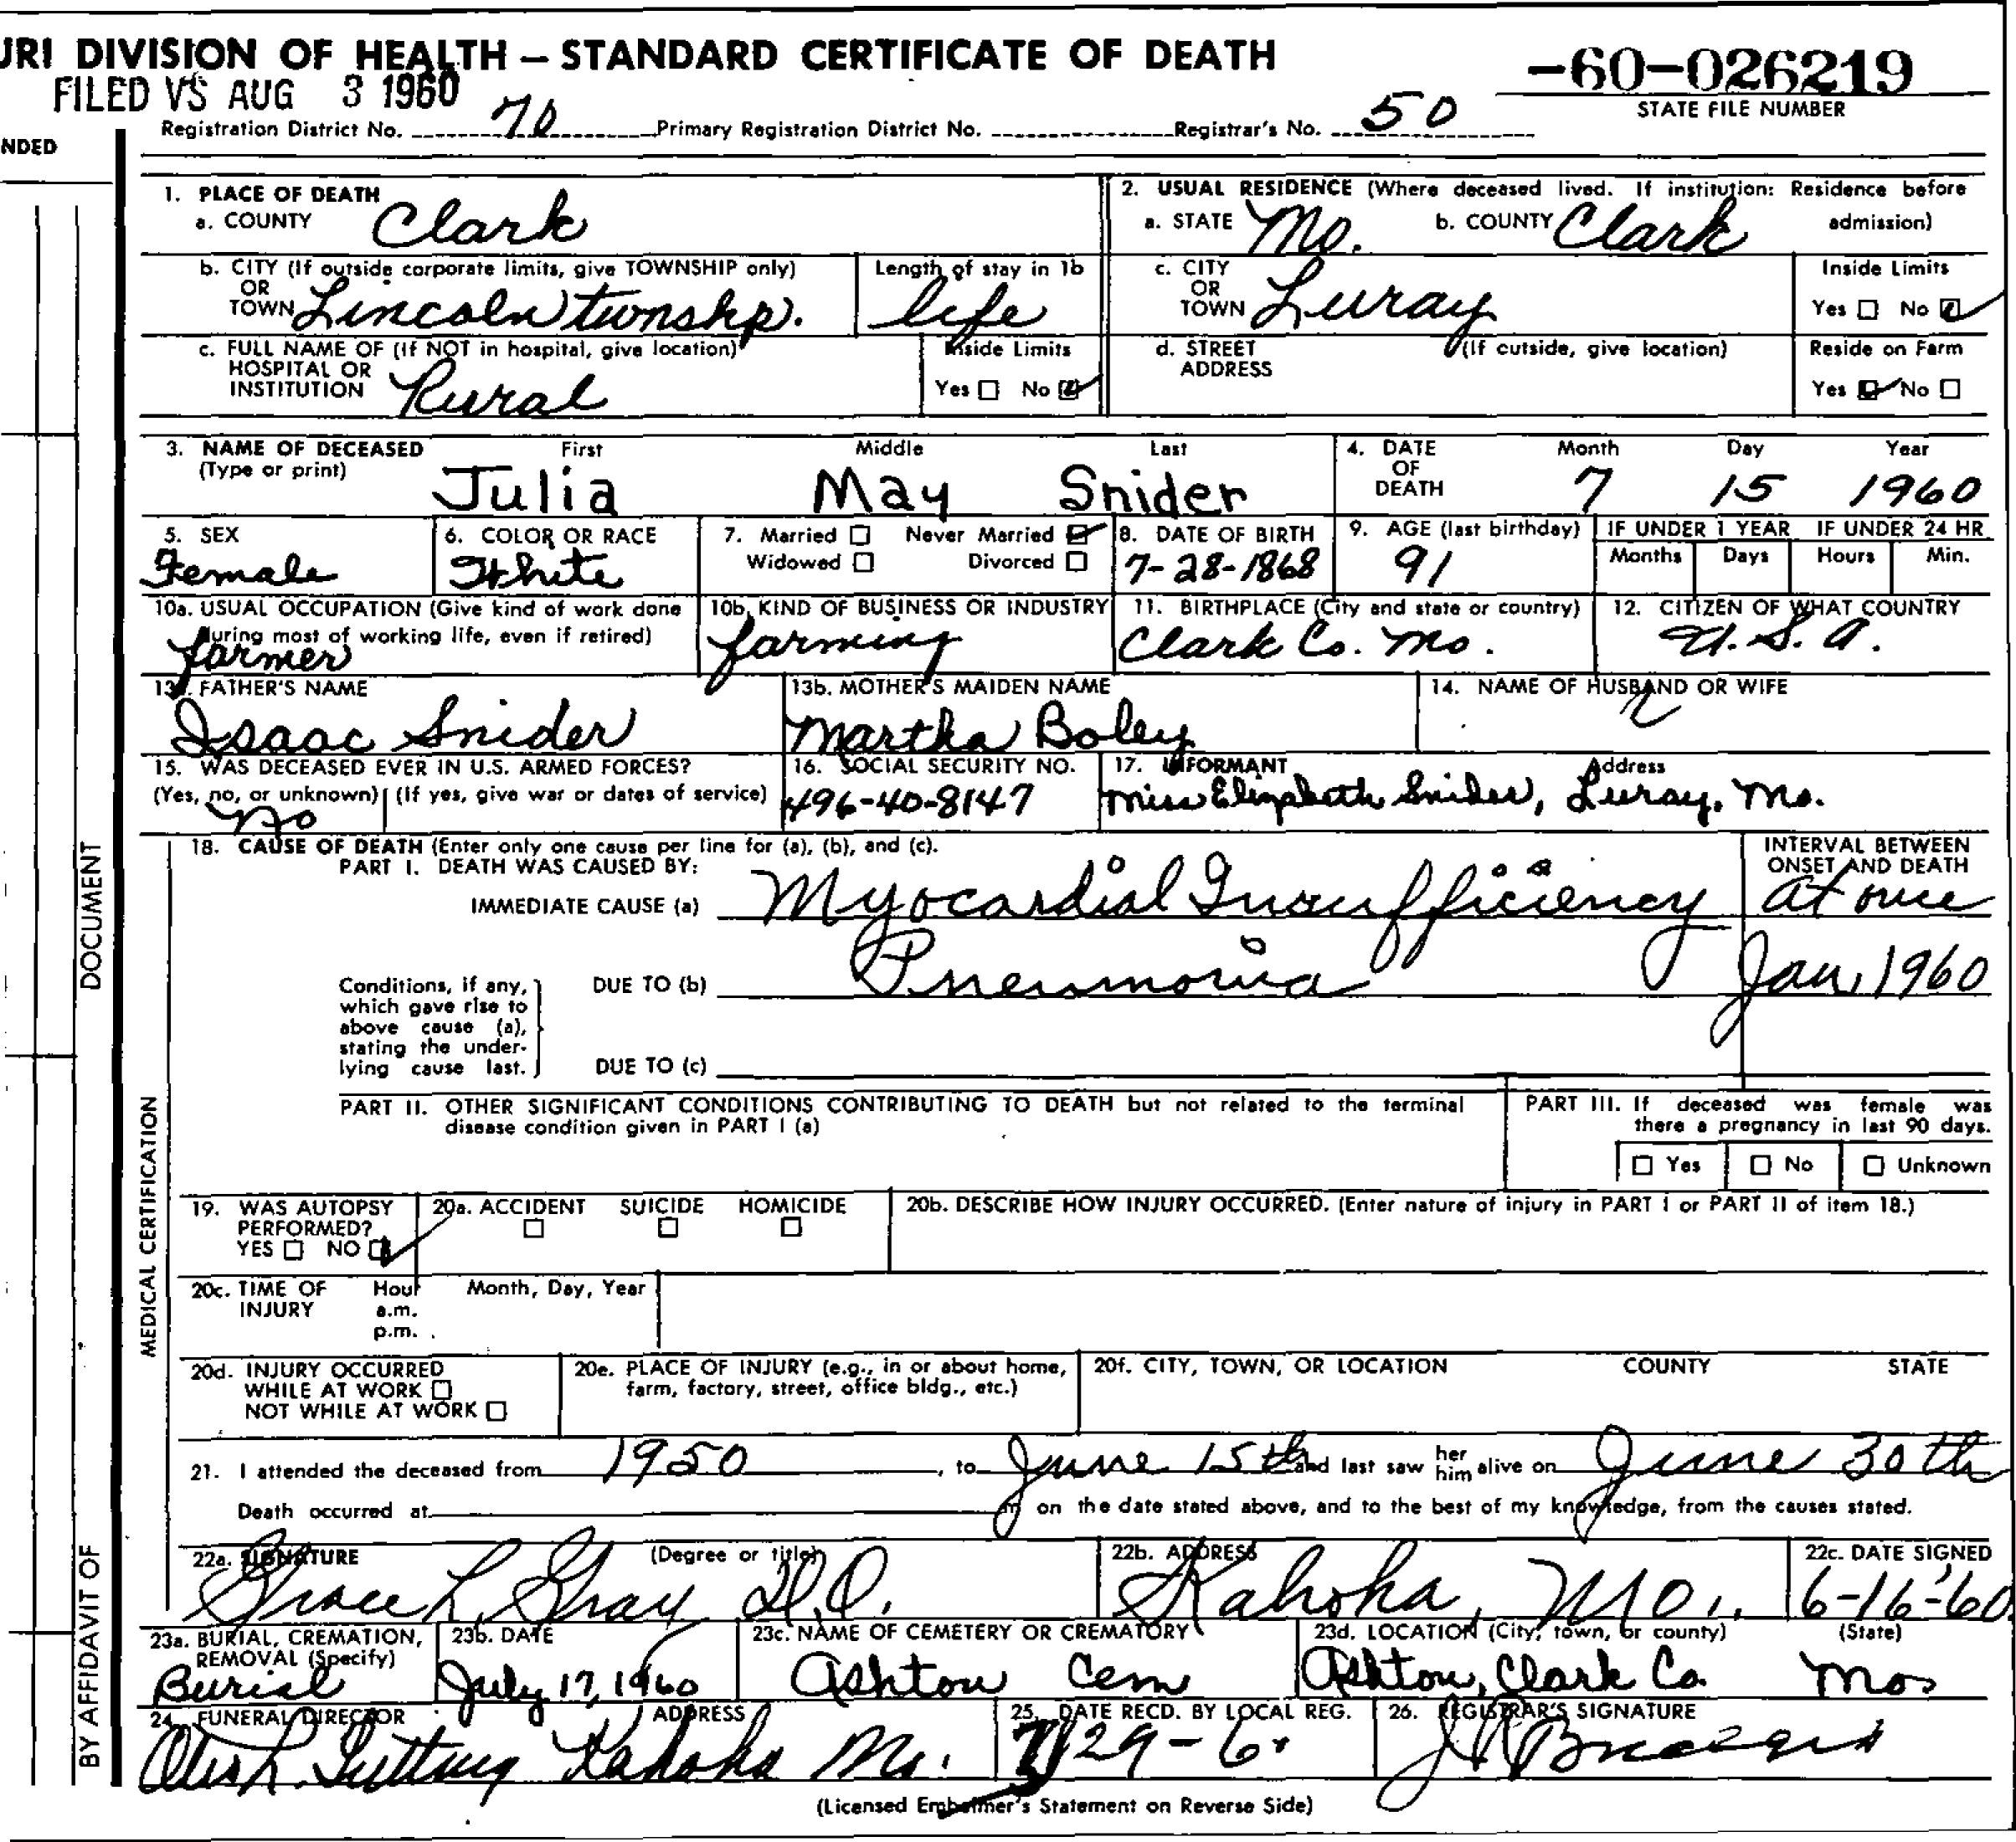 URI DIVISION OF HEALTH – STANDARD CERTIFICATE OF DEATH
-60-026219
FILED VS AUG 3 1960
STATE FILE NUMBER
Registration District No. 70 Primary Registration District No. Registrar's No. 50
NDED
1. PLACE OF DEATH
a. COUNTY Clark
2. USUAL RESIDENCE (Where deceased lived. If institution: Residence before admission)
a. STATE Mo. b. COUNTY Clark
b. CITY (If outside corporate limits, give TOWNSHIP only)
OR
TOWN Lincoln twnshp.
Length of stay in 1b
life
c. CITY
OR
TOWN Luray
Inside Limits
Yes No
c. FULL NAME OF (If NOT in hospital, give location)
HOSPITAL OR
INSTITUTION Rural
Inside Limits
Yes No
d. STREET
ADDRESS
(If outside, give location)
Reside on Farm
Yes No
3. NAME OF DECEASED
(Type or print)
First Middle Last
Julia May Snider
4. DATE
OF
DEATH
Month Day Year
7 15 1960
5. SEX
Female
6. COLOR OR RACE
White
7. Married Never Married
Widowed Divorced
8. DATE OF BIRTH
7-28-1868
9. AGE (last birthday)
91
IF UNDER 1 YEAR
Months Days
IF UNDER 24 HR
Hours Min.
10a. USUAL OCCUPATION (Give kind of work done
during most of working life, even if retired)
farmer
10b. KIND OF BUSINESS OR INDUSTRY
farming
11. BIRTHPLACE (City and state or country)
Clark Co. Mo.
12. CITIZEN OF WHAT COUNTRY
U.S.A.
13a. FATHER'S NAME
Isaac Snider
13b. MOTHER'S MAIDEN NAME
Martha Boley
14. NAME OF HUSBAND OR WIFE
15. WAS DECEASED EVER IN U.S. ARMED FORCES?
(Yes, no, or unknown) (If yes, give war or dates of service)
No
16. SOCIAL SECURITY NO.
496-40-8147
17. INFORMANT Address
Miss Elizabeth Snider, Luray, Mo.
18. CAUSE OF DEATH (Enter only one cause per line for (a), (b), and (c).
PART I. DEATH WAS CAUSED BY:
INTERVAL BETWEEN
ONSET AND DEATH
IMMEDIATE CAUSE (a) Myocardial Insufficiency at once
Conditions, if any,
which gave rise to
above cause (a),
stating the under-
lying cause last.
DUE TO (b) Pneumonia Jan, 1960
DUE TO (c)
PART II. OTHER SIGNIFICANT CONDITIONS CONTRIBUTING TO DEATH but not related to the terminal
disease condition given in PART I (a)
PART III. If deceased was female was
there a pregnancy in last 90 days.
Yes No Unknown
19. WAS AUTOPSY
PERFORMED?
YES NO
20a. ACCIDENT SUICIDE HOMICIDE
20b. DESCRIBE HOW INJURY OCCURRED. (Enter nature of injury in PART I or PART II of item 18.)
20c. TIME OF
INJURY
Hour
a.m.
p.m.
Month, Day, Year
20d. INJURY OCCURRED
WHILE AT WORK
NOT WHILE AT WORK
20e. PLACE OF INJURY (e.g., in or about home,
farm, factory, street, office bldg., etc.)
20f. CITY, TOWN, OR LOCATION COUNTY STATE
21. I attended the deceased from 1950, to June 15th and last saw her him alive on June 30th
Death occurred at m on the date stated above, and to the best of my knowledge, from the causes stated.
22a. SIGNATURE (Degree or title)
Grace L. Gray D.O.
22b. ADDRESS
Kahoka, Mo.
22c. DATE SIGNED
6-16-'60
23a. BURIAL, CREMATION,
REMOVAL (Specify)
Burial
23b. DATE
July 17, 1960
23c. NAME OF CEMETERY OR CREMATORY
Ashton Cem
23d. LOCATION (City, town, or county) (State)
Ashton, Clark Co. Mo
24. FUNERAL DIRECTOR ADDRESS
Otis L. Kahoka Mo.
25. DATE RECD. BY LOCAL REG.
7/29-60
26. REGISTRAR'S SIGNATURE
(Licensed Embalmer's Statement on Reverse Side)
DOCUMENT
MEDICAL CERTIFICATION
BY AFFIDAVIT OF